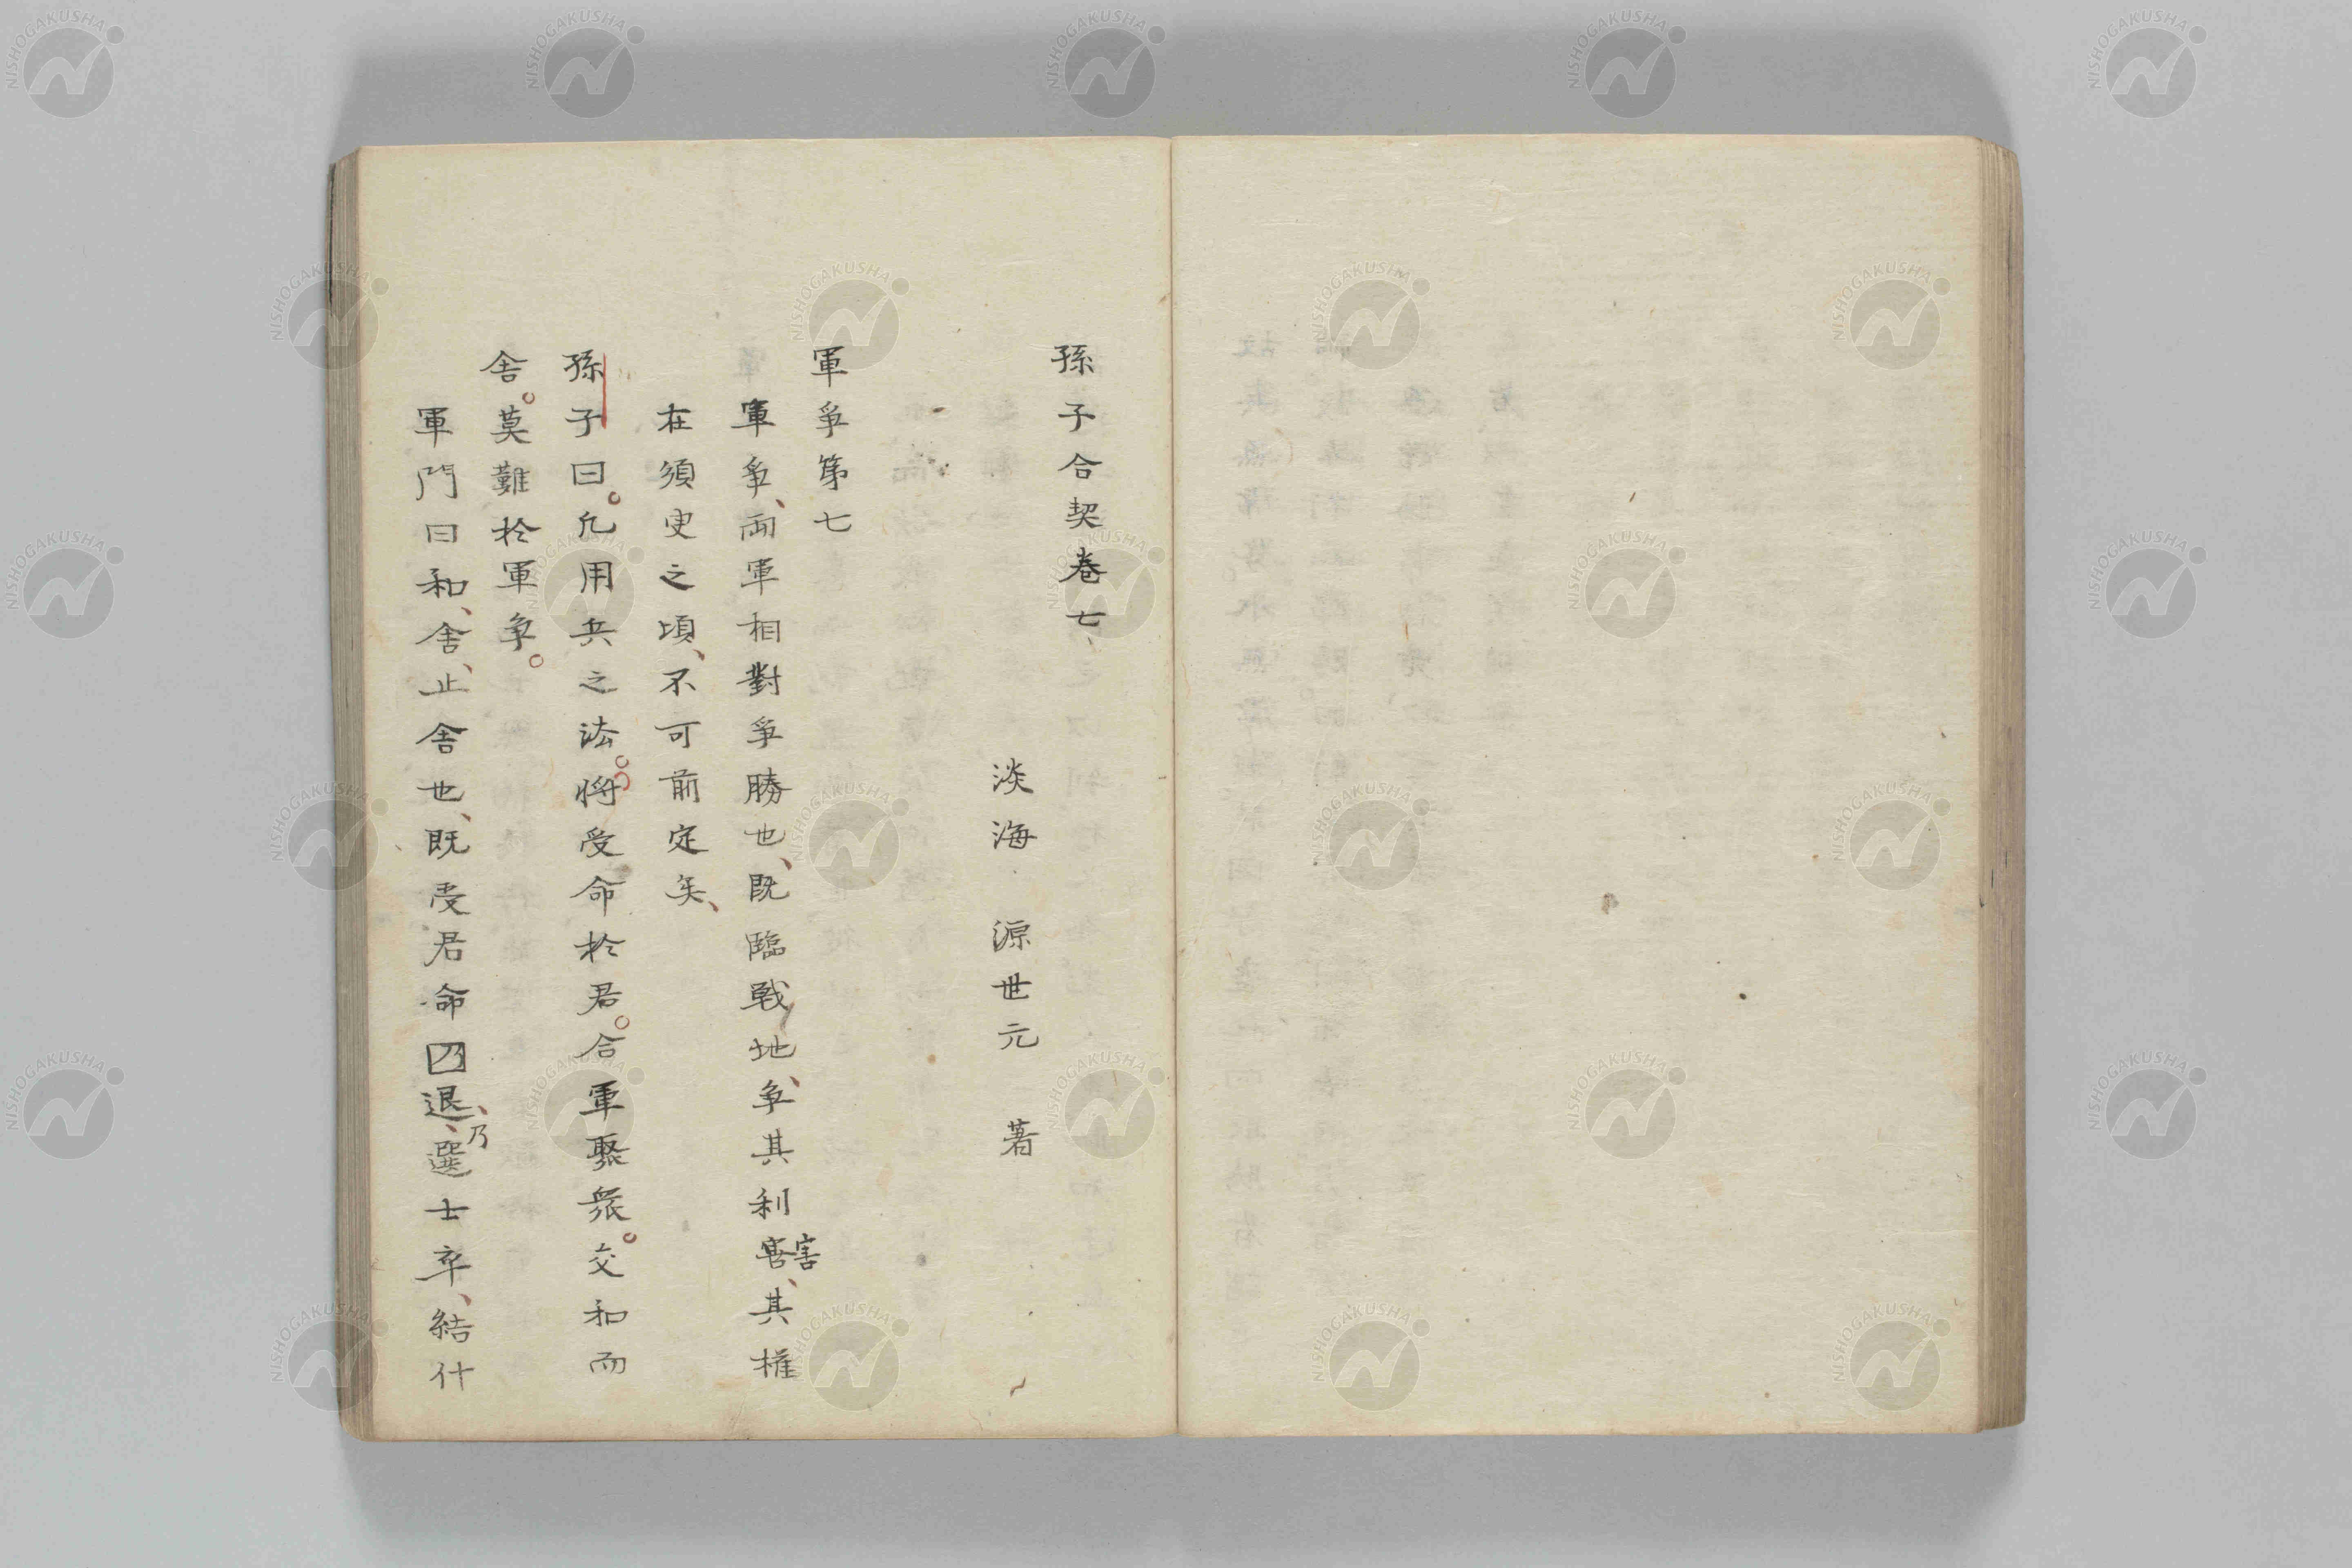 孫子合契卷七
淡海 源世元 著
軍爭第七
軍爭、兩軍相對爭勝也、既臨戰地、爭其利害害、其權
在須臾之頃、不可前定矣、
孫子曰。凡用兵之法。將受命於君。合軍聚衆。交和而
舍。莫難於軍爭。
軍門曰和、舍、止舍也、既受君命乃退、乃選士卒、結什
NISHOGAKUSHA